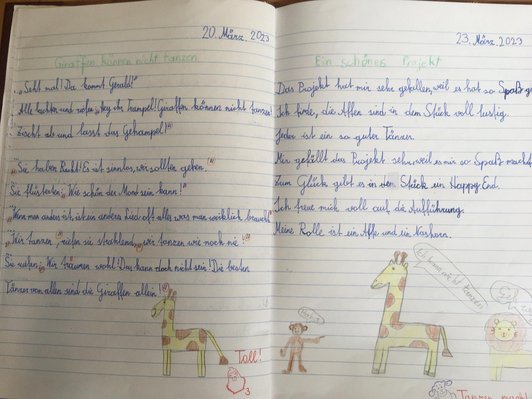 20. März, 2023
Giraffen können nicht tanzen
„Seht mal! Da kommt Gerald!"
Alle lachten und rufen „Hey du Trampel! Giraffen können nicht tanzen!
Zischt ab und lasst das Gehampel!"
„Sie haben Recht! Es ist sinnlos, wir sollten gehen."
Sie flüsterten: „Wie schön der Mond sein kann!"
"Wenn man anders ist, ist ein anderes Lied oft alles was man wirklich braucht"
"Wir tanzen", rufen sie strahlend, „wir tanzen wie noch nie!"
Sie rufen: „Wir träumen wohl! Das kann doch nicht sein! Die besten
Tänzer von allen sind die Giraffen allein."
Toll!
3
23. März, 2023
Ein schönes Projekt
Das Projekt hat mir sehr gefallen, weil es hat so Spaß
Ich finde, die Affen sind in dem Stück voll lustig.
Jeder ist ein so guter Tänzer.
Mir gefällt das Projekt sehr, weil es mir so Spaß macht
Zum Glück gibt es in dem Stück ein Happy End.
Ich freue mich voll auf die Aufführung.
Meine Rolle ist ein Affe und ein Nashorn.
nicht tanzen
Tanzen macht